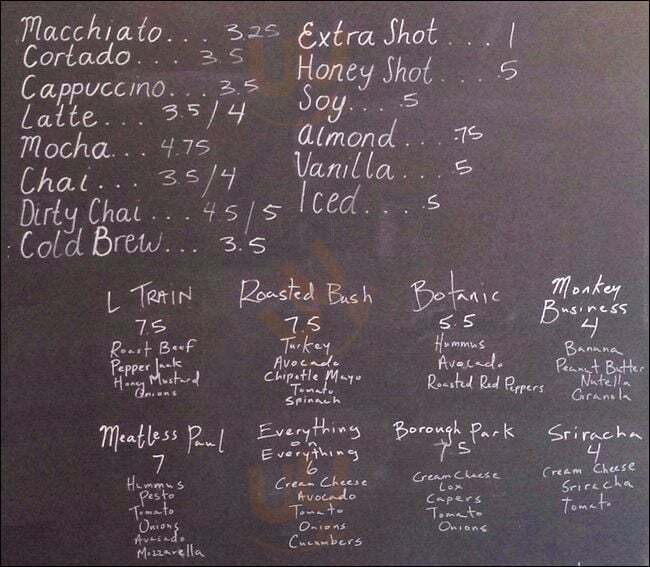 Macchiato... 3.25
Cortado... 3.5
Cappuccino... 3.5
Latte... 3.5/4
Mocha... 4.75
Chai... 3.5/4
Dirty Chai... 4.5/5
Cold Brew... 3.5
Extra Shot.... 1
Honey Shot.....5
Soy.....5
almond....75
Vanilla....5
Iced.....5
L TRAIN
7.5
Roast Beef
Pepper Jack
Honey Mustard
Onions
Roasted Bush
7.5
Turkey
Avocado
Chipotle Mayo
Tomato
Spinach
Botanic
5.5
Hummus
Avocado
Roasted Red Peppers
Monkey
Business
4
Banana
Peanut Butter
Nutella
Granola
Meatless Paul
7
Hummus
Pesto
Tomato
Onions
Avocado
Mozzarella
Everything
on
Everything
6
Cream Cheese
Avocado
Tomato
Onions
Cucumbers
Borough Park
7.5
Cream Cheese
Lox
Capers
Tomato
Onions
Sriracha
4
Cream Cheese
Sriracha
Tomato